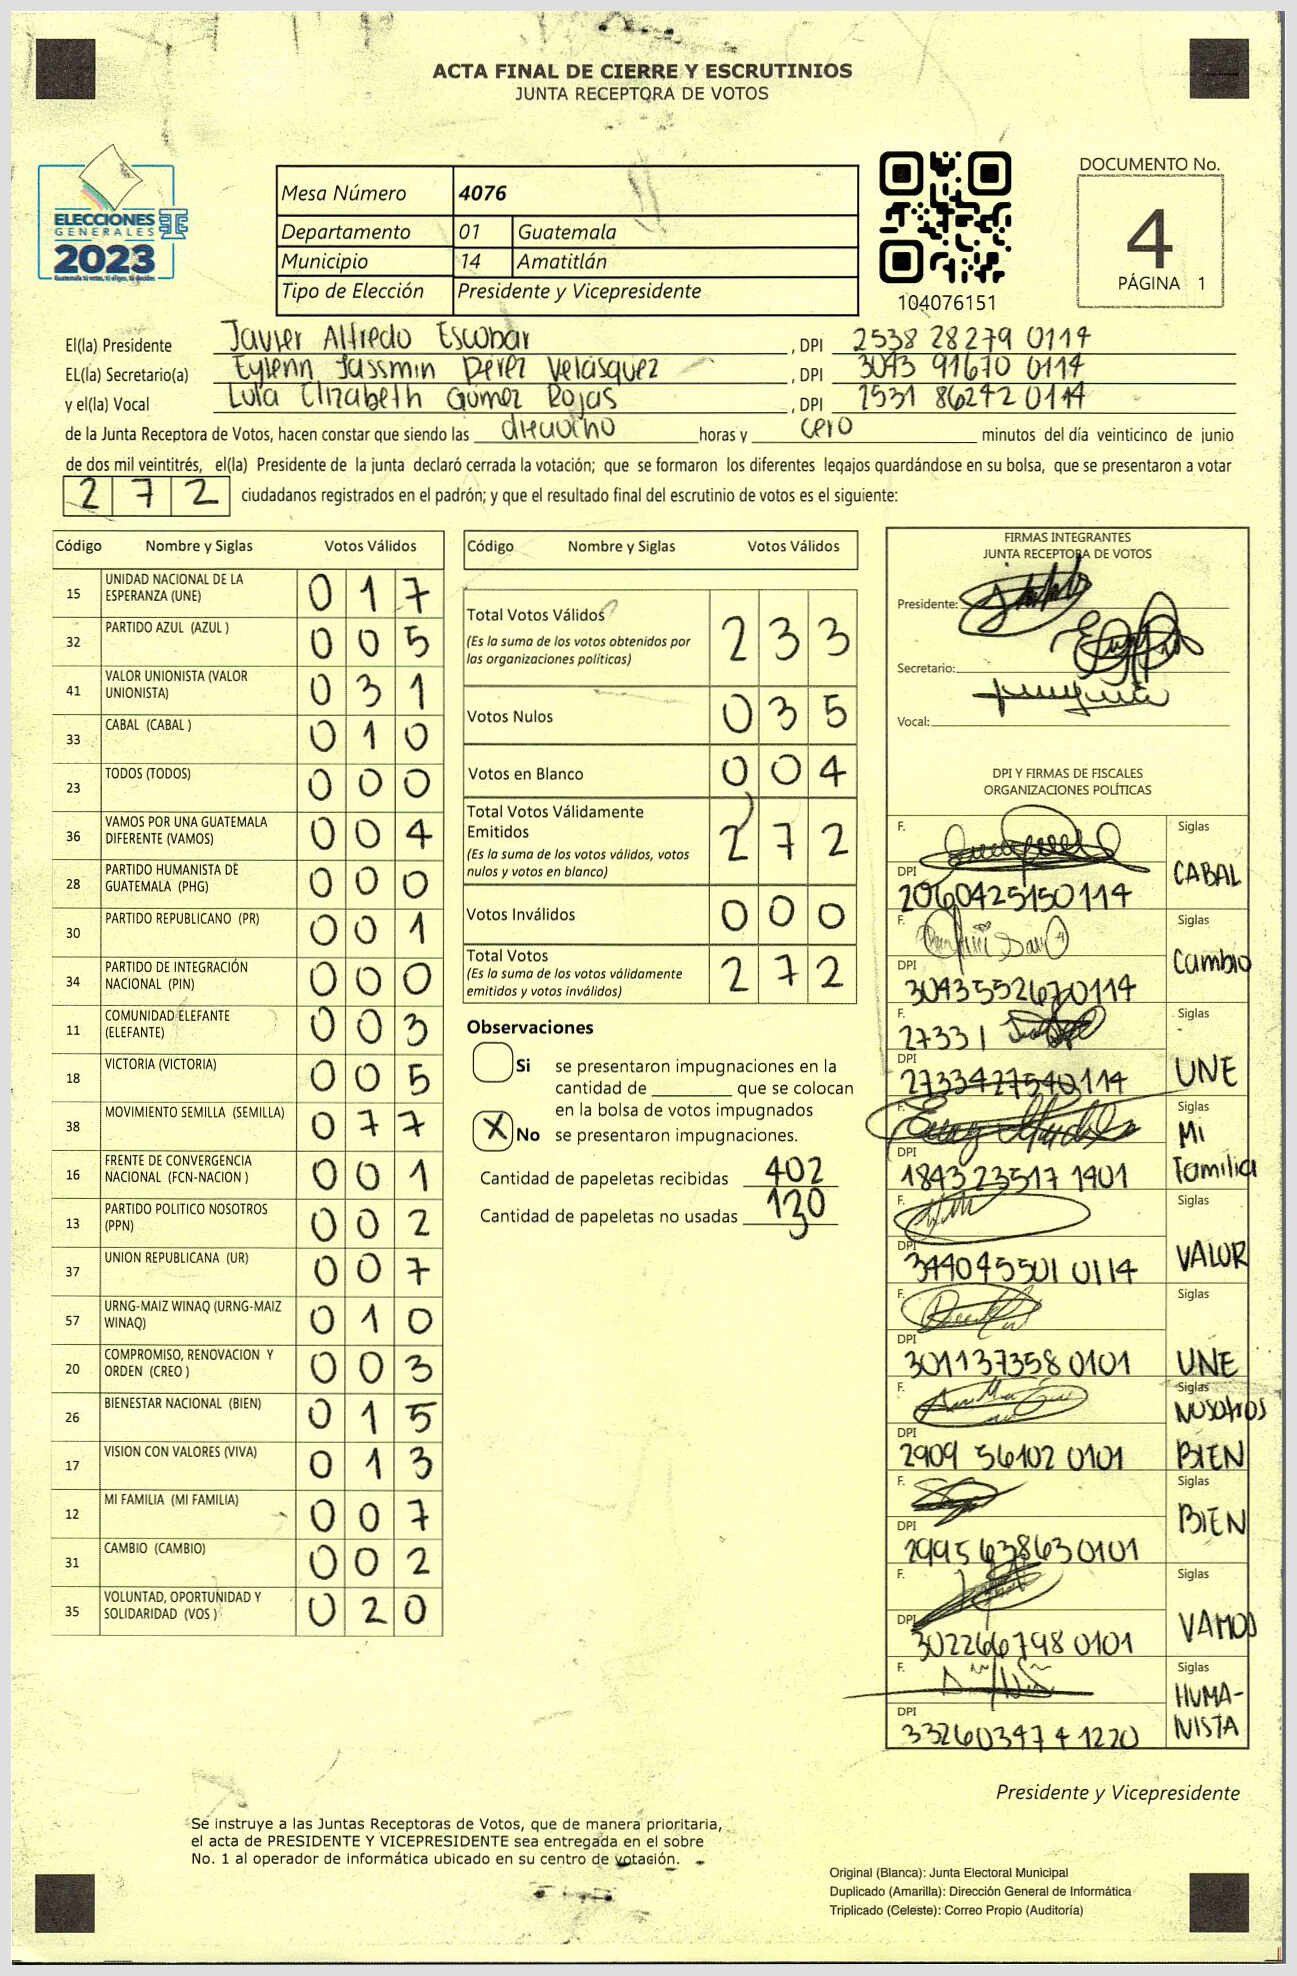 ACTA FINAL DE CIERRE Y ESCRUTINIOS
JUNTA RECEPTORA DE VOTOS
ELECCIONES
GENERALES
2023
Mesa Número 4076
Departamento 01 Guatemala
Municipio 14 Amatitlán
Tipo de Elección Presidente y Vicepresidente
104076151
DOCUMENTO No.
4
PÁGINA 1
El(la) Presidente Javier Alfredo Escobar , DPI 2538 28279 0114
EL(la) Secretario(a) Eylenn Jassmin Pérez Velásquez , DPI 3043 91670 0114
y el(la) Vocal Elizabeth Gómez Rojas , DPI 2531 86242 0114
de la Junta Receptora de Votos, hacen constar que siendo las horas y cero minutos del día veinticinco de junio
de dos mil veintitrés, el(la) Presidente de la junta declaró cerrada la votación; que se formaron los diferentes legajos guardándose en su bolsa, que se presentaron a votar
272 ciudadanos registrados en el padrón; y que el resultado final del escrutinio de votos es el siguiente:
Código Nombre y Siglas Votos Válidos
15 UNIDAD NACIONAL DE LA ESPERANZA (UNE) 017
32 PARTIDO AZUL (AZUL ) 005
41 VALOR UNIONISTA (VALOR UNIONISTA) 031
33 CABAL (CABAL ) 010
23 TODOS (TODOS) 000
36 VAMOS POR UNA GUATEMALA DIFERENTE (VAMOS) 004
28 PARTIDO HUMANISTA DE GUATEMALA (PHG) 000
30 PARTIDO REPUBLICANO (PR) 001
34 PARTIDO DE INTEGRACIÓN NACIONAL (PIN) 000
11 COMUNIDAD ELEFANTE (ELEFANTE) 003
18 VICTORIA (VICTORIA) 005
38 MOVIMIENTO SEMILLA (SEMILLA) 077
16 FRENTE DE CONVERGENCIA NACIONAL (FCN-NACION ) 001
13 PARTIDO POLITICO NOSOTROS (PPN) 002
37 UNION REPUBLICANA (UR) 007
57 URNG-MAIZ WINAQ (URNG-MAIZ WINAQ) 010
20 COMPROMISO, RENOVACION Y ORDEN (CREO ) 003
26 BIENESTAR NACIONAL (BIEN) 015
17 VISION CON VALORES (VIVA) 013
12 MI FAMILIA (MI FAMILIA) 007
31 CAMBIO (CAMBIO) 002
35 VOLUNTAD, OPORTUNIDAD Y SOLIDARIDAD (VOS ) 020
Código Nombre y Siglas Votos Válidos
Total Votos Válidos 233
(Es la suma de los votos obtenidos por
las organizaciones políticas)
Votos Nulos 035
Votos en Blanco 004
Total Votos Válidamente
Emitidos 272
(Es la suma de los votos válidos, votos
nulos y votos en blanco)
Votos Inválidos 000
Total Votos 272
(Es la suma de los votos válidamente
emitidos y votos inválidos)
Observaciones
Si se presentaron impugnaciones en la
cantidad de que se colocan
en la bolsa de votos impugnados
X No se presentaron impugnaciones.
Cantidad de papeletas recibidas 402
Cantidad de papeletas no usadas 130
FIRMAS INTEGRANTES
JUNTA RECEPTORA DE VOTOS
Presidente:
Secretario:
Vocal:
DPI Y FIRMAS DE FISCALES
ORGANIZACIONES POLÍTICAS
F. Siglas
DPI CABAL
2060425150114
F. Siglas
DPI Cambio
3043552670114
F. Siglas
27331
DPI UNE
2733427540114
F. Siglas
DPI Mi Familia
1843 23517 1401
F. Siglas
DPI VALOR
344045501 0114
F. Siglas
DPI
301137358 0101 UNE
F. Siglas
Nosotros
DPI
2909 56102 0101 BIEN
F. Siglas
DPI BIEN
2995638630101
F. Siglas
DPI VAMOS
302266798 0101
F. Siglas
DPI HUMA-
NISTA
332603474 1220
Presidente y Vicepresidente
Se instruye a las Juntas Receptoras de Votos, que de manera prioritaria,
el acta de PRESIDENTE Y VICEPRESIDENTE sea entregada en el sobre
No. 1 al operador de informática ubicado en su centro de votación.
Original (Blanca): Junta Electoral Municipal
Duplicado (Amarilla): Dirección General de Informática
Triplicado (Celeste): Correo Propio (Auditoría)